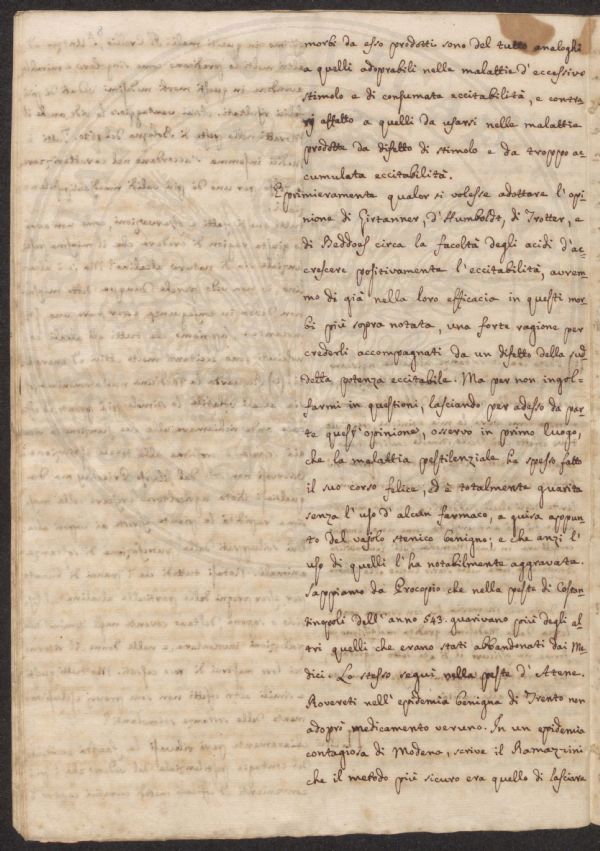 morbi da esso prodotti sono del tutto analoghi
a quelli adoprabili nelle malattie d'eccessivo
stimolo e di consumata eccitabilità, e contra-
rj affatto a quelli da usarsi nelle malattie
prodotte da difetto di stimolo e da troppo ac-
cumulata eccitabilità.
E primieramente qualor si volesse adottare l'opi-
nione di Girtanner, d'Humboldt, di Trotter, e
di Beddoes circa la facoltà degli acidi d'ac-
crescere positivamente l'eccitabilità, avrem-
mo di già nella loro efficacia in questi mor-
bi più sopra notata, una forte ragione per
crederli accompagnati da un difetto della sud-
detta potenza eccitabile. Ma per non ingol-
farmi in questioni, lasciando per adesso da par-
te quest'opinione, osservo in primo luogo,
che la malattia pestilenziale ha spesso fatto
il suo corso felice, ed è totalmente guarita
senza l'uso d'alcun farmaco, a guisa appun-
to del vajolo stenico benigno; e che anzi l'
uso di quelli l'ha notabilmente aggravata.
Sappiamo da Procopio che nella peste di Costan-
tinopoli dell'anno 543. guarivano più degli al-
tri quelli che erano stati abbandonati dai Me-
dici. Lo stesso seguì nella peste d'Atene.
Rovereti nell'epidemia benigna di Trento non
adoprò medicamento veruno. In un epidemia
contagiosa di Modena, scrive il Ramazzini
che il metodo più sicuro era quello di lasciare